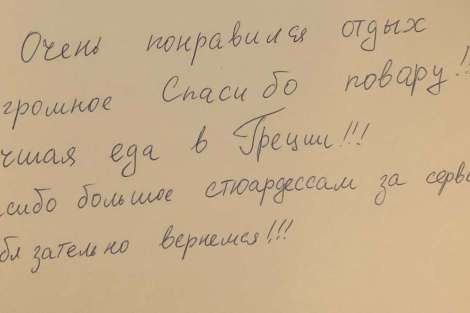 Очень понравился отдых
громное Спасибо повару!!
чшая еда в Греции!!!
сибо большое стюардессам за серв
бязательно вернемся!!!